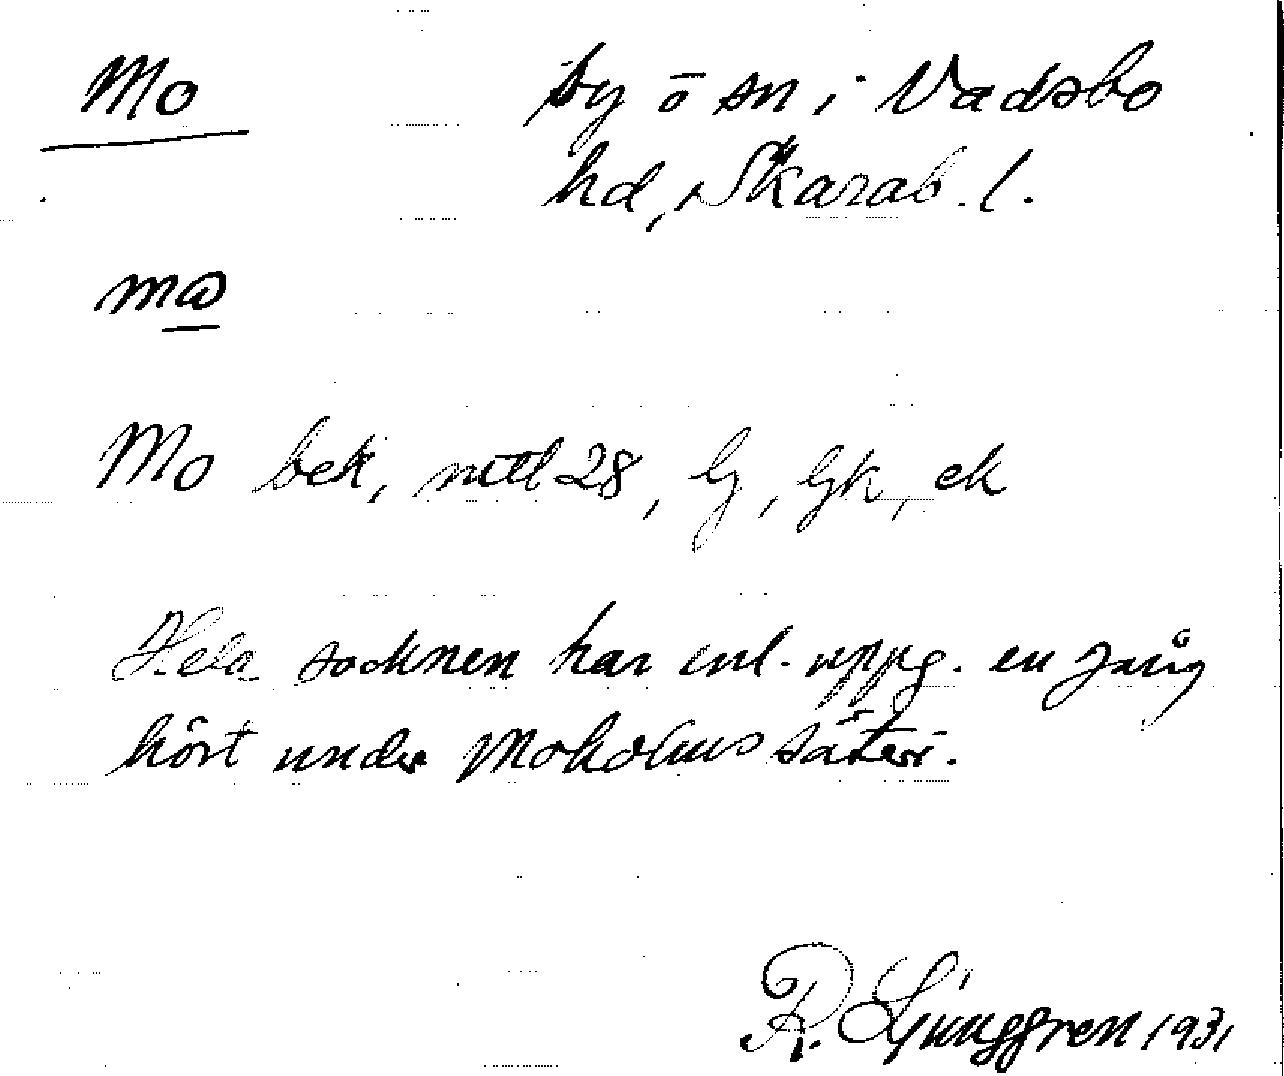 Mo
by o sn i Vadsbo
hd, Skarab. l.
Mo bek, mtl 28, lg, lgk, ek
Hela socknen har enl. uppg. en gång
hört under Moholms säteri.
R. Ljunggren 1931